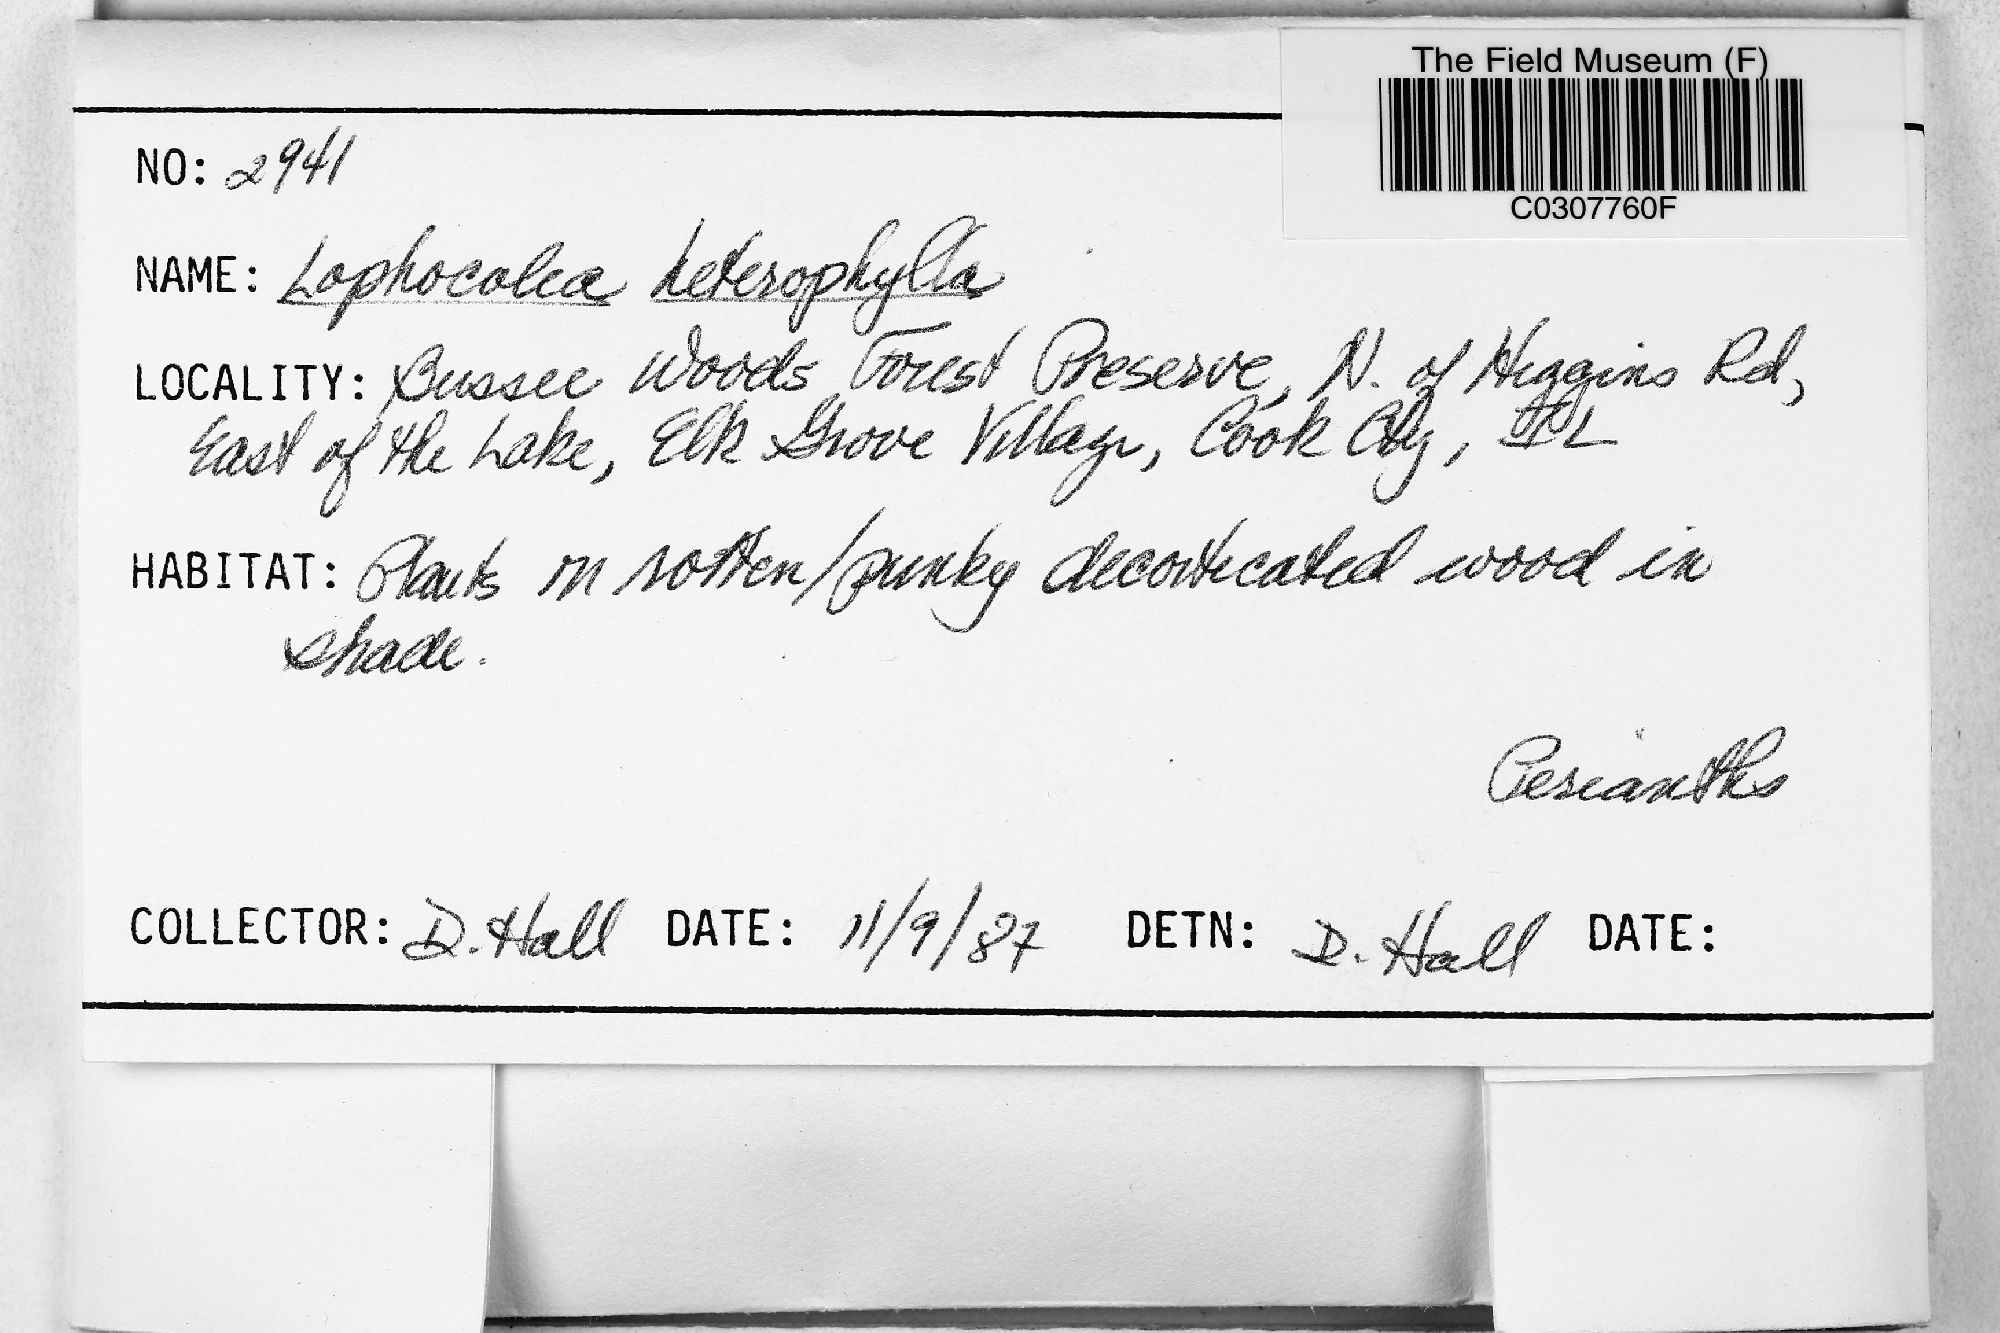 The Field Museum (F)
C0307760F
NO: 2941
NAME: Lophocolea heterophylla
LOCALITY: Bussee Woods Forest Preserve, N. of Higgins Rd,
East of the Lake, Elk Grove Village, Cook Cty, IL
HABITAT: Plants on rotten/punky decorticated wood in
shade.
Perianths
COLLECTOR: D. Hall DATE: 11/9/87 DETN: D. Hall DATE: